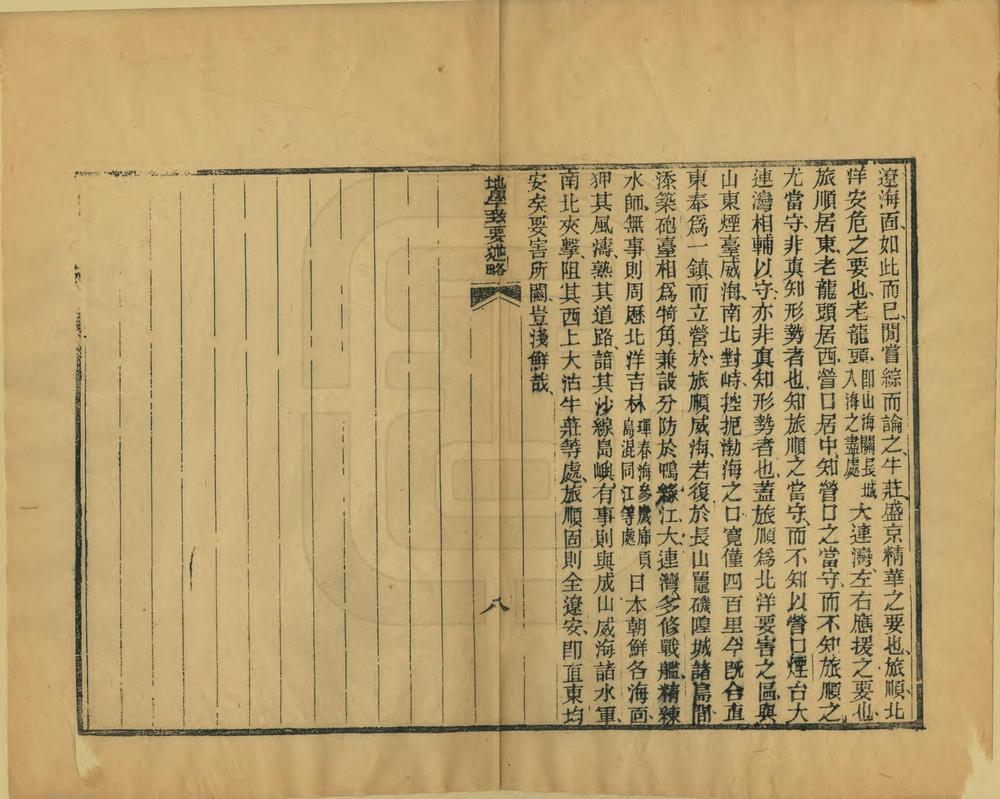 遼海面、如此而已、閒嘗綜而論之、牛莊、盛京精華之要也、旅順、北
洋安危之要也、老龍頭、即山海關長城入海之盡處大連灣、左右應援之要也、
旅順居東、老龍頭居西、營口居中、知營口之當守、而不知旅順之
尤當守、非眞知形勢者也、知旅順之當守、而不知以營口煙台大
連灣相輔以守、亦非眞知形勢者也、蓋旅順爲北洋要害之區、與
山東煙臺威海、南北對峙、控扼渤海之口、寬僅四百里、今旣合直
東奉爲一鎮、而立營於旅順威海、若復於長山鼉磯隍城諸島間、
添築砲臺、相爲犄角、兼設分防於鴨綠江大連灣、多修戰艦、精練
水師、無事則周厯北洋吉林、琿春海參崴庫頁島混同江等處日本朝鮮各海面、
狎其風濤、熟其道路、諳其沙線島嶼、有事則與成山威海諸水軍、
南北夾擊、阻其西上大沽牛莊等處、旅順固則全遼安、即直東均
安矣、要害所關、豈淺鮮哉、
地學要述略
八